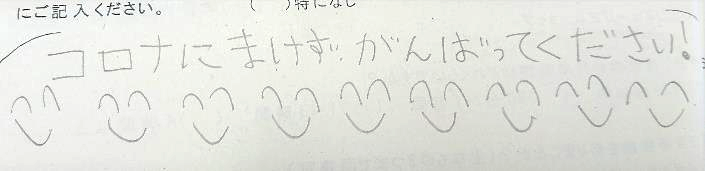 にご記入ください。 (  )特になし
(コロナにまけず、がんばってください!)